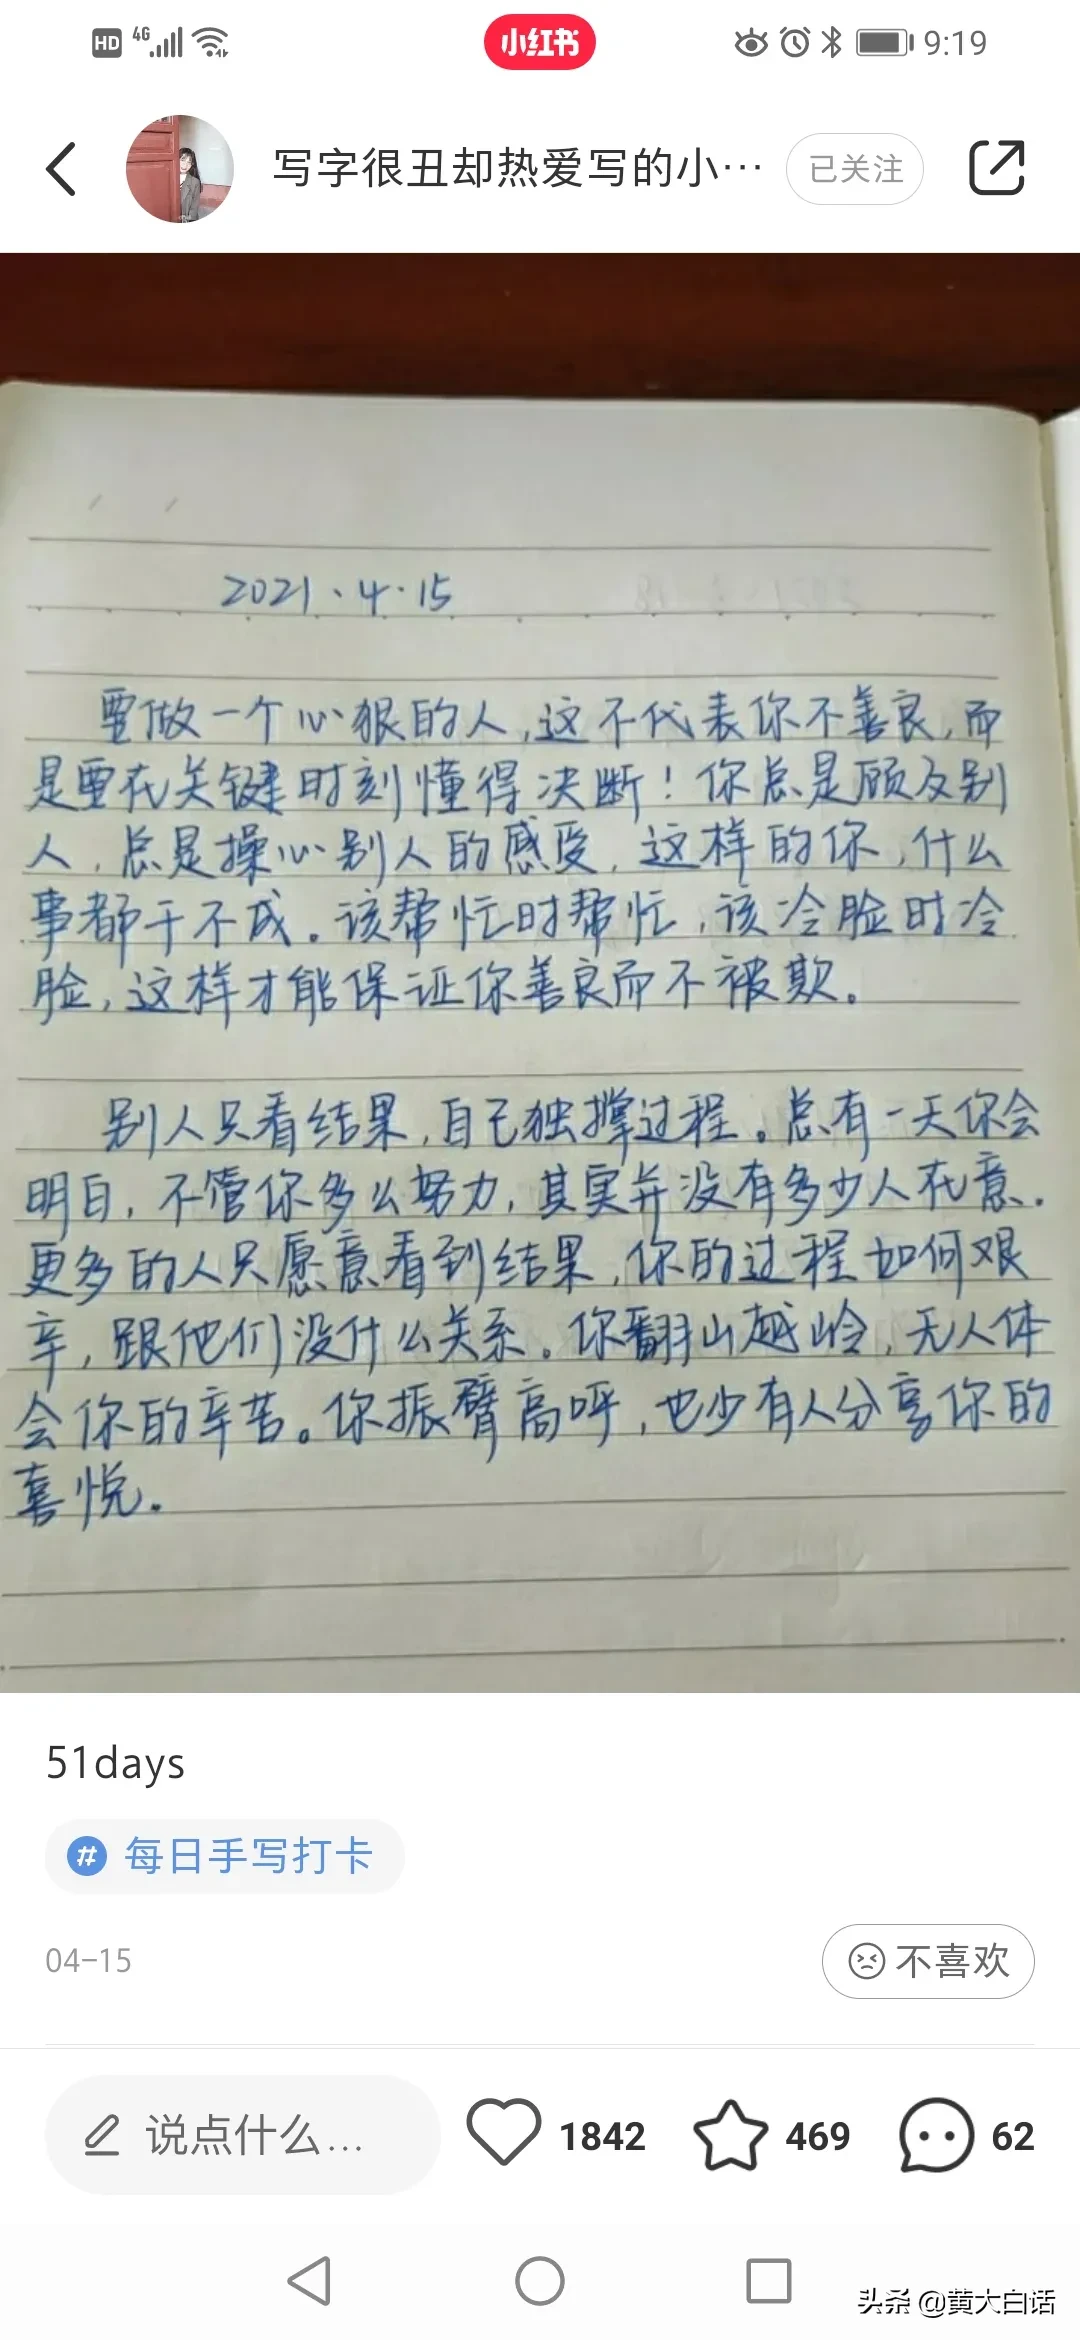 HD 4G 小红书 9:19
写字很丑却热爱写的小… 已关注
2021、4·15
要做一个心狠的人,这不代表你不善良,而
是要在关键时刻懂得决断！你总是顾及别
人,总是操心别人的感受,这样的你,什么
事都干不成。该帮忙时帮忙,该冷脸时冷
脸,这样才能保证你善良而不被欺。
别人只看结果,自己独撑过程。总有一天你会
明白,不管你多么努力,其实并没有多少人在意.
更多的人只愿意看到结果,你的过程如何艰
辛,跟他们没什么关系。你翻山越岭,无人体
会你的辛苦。你振臂高呼,也少有人分享你的
喜悦。
51days
# 每日手写打卡
04-15 不喜欢
说点什么... 1842 469 62
头条 @黄大白话